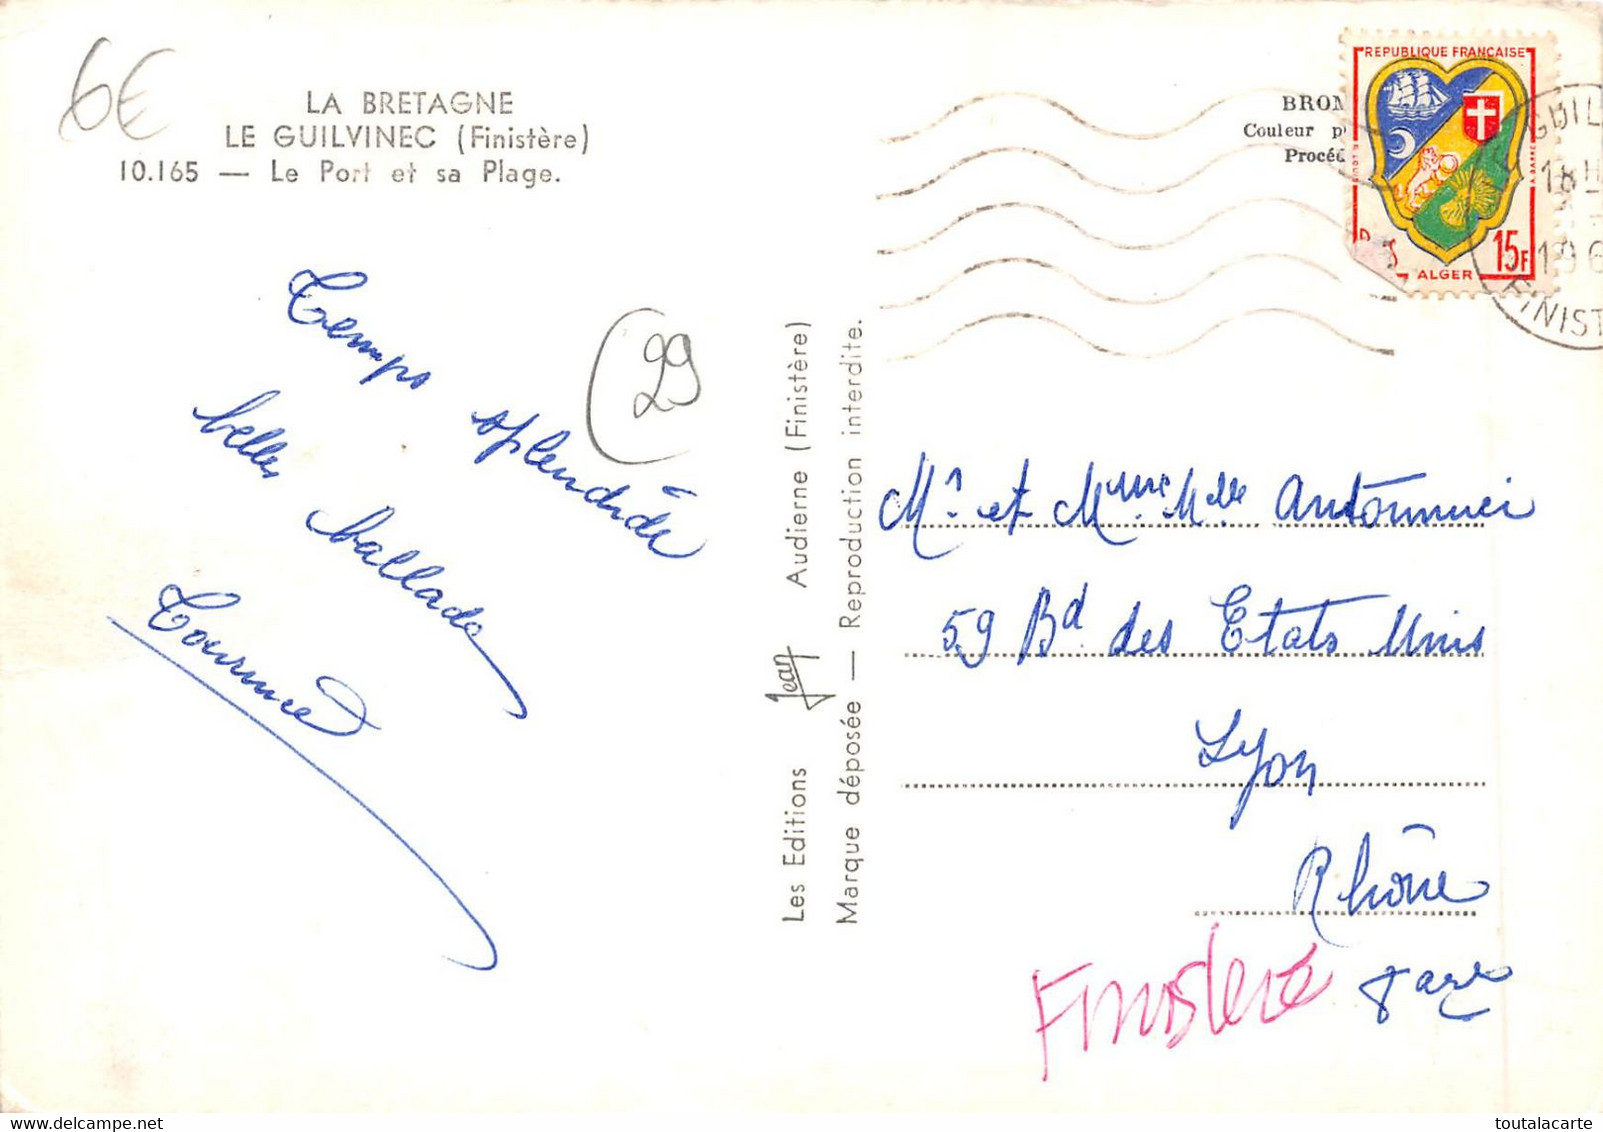 6€
LA BRETAGNE
LE GUILVINEC (Finistère)
10.165 — Le Port et sa Plage.
Temps splendide
belles ballades
(29
Les Editions Jean Audierne (Finistère)
Marque déposée — Reproduction interdite.
BROM
Couleur p
Procéd
REPUBLIQUE FRANÇAISE
15F
ALGER
GUIL
18H
196
FINIST
Mr et Mme Mlle Antonnuci
59 Bd des Etats Unis
Lyon
Rhône
Finistère
toutalacarte